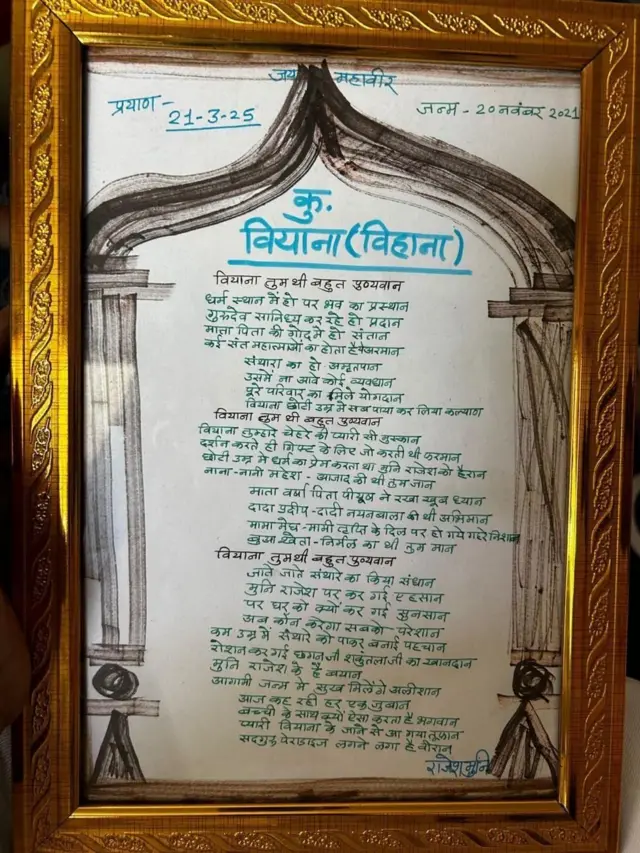 जय महावीर
प्रयाण -
21-3-25
जन्म - 20 नवंबर 2021
कु.
वियाना (विहाना)
वियाना तुम थी बहुत पुण्यवान
धर्म स्थान में हो पर भव का प्रस्थान
गुरुदेव सानिध्य कर रहे हो प्रदान
माता पिता की गोद मे हो संतान
कई संत महात्माओं का होता है
संथारा का हो अमृतपान
उसमें ना आवे कोई व्यवधान
पूरे परिवार का मिले योगदान
वियाना छोटी उम्र में सब पाया कर लिया कल्याण
वियाना तुम थी बहुत पुण्यवान
वियाना तुम्हारे चेहरे की प्यारी सी मुस्कान
दर्शन करते ही गिफ्ट के लिए जो करती थी फरमान
छोटी उम्र मे धर्म का प्रेम करता था मुनि राजेश को हैरान
नाना-नानी महेश - आजाद की थी तुम जान
माता वर्षा पिता पीयूष ने रखा खूब ध्यान
दादा प्रदीप-दादी नयनबाला की थी अभिमान
मामा मेघ-मामी तृप्ति के दिल पर हो गये गहरे निशान
बुआ श्वेता - निर्मल का थी तुम मान
वियाना तुम थी बहुत पुण्यवान
जाते जाते संथारे का किया संधान
मुनि राजेश पर कर गई एहसान
पर घर को क्यों कर गई सुनसान
अब कौन करेगा सबको परेशान
कम उम्र में संथारे को पाकर बनाई पहचान
रोशन कर गई छगनजी शकुंतलाजी का खानदान
मुनि राजेश के है बयान
आगामी जन्म मे सुख मिलेंगे आलीशान
आज कह रही हर एक जुबान
बच्ची के साथ क्यों ऐसा करता है भगवान
प्यारी वियाना के जाने से आ गया तूफान
सदगुरु लगने लगा है वीरान
राजेश मुनि